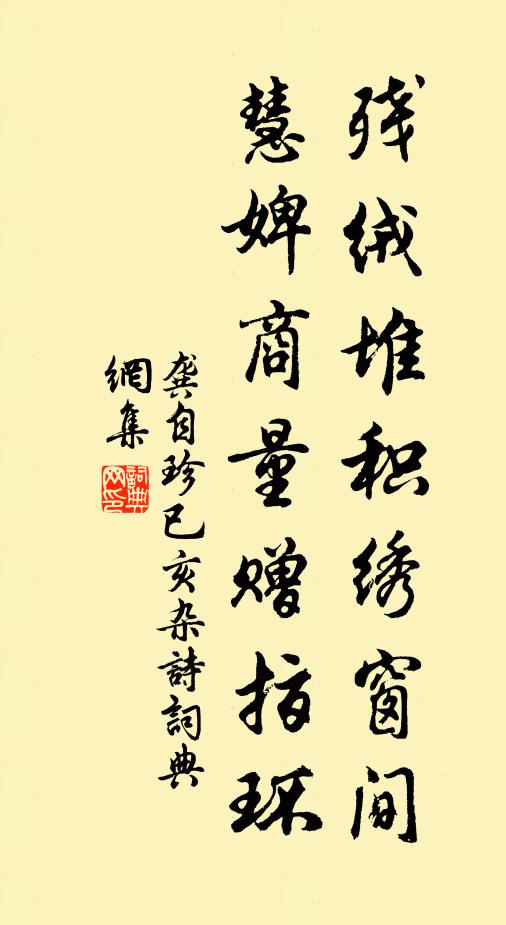 残绒堆积绣窗间
慧婢商量赠指环
龚自珍已亥杂詩詞典
網集
詞典网印